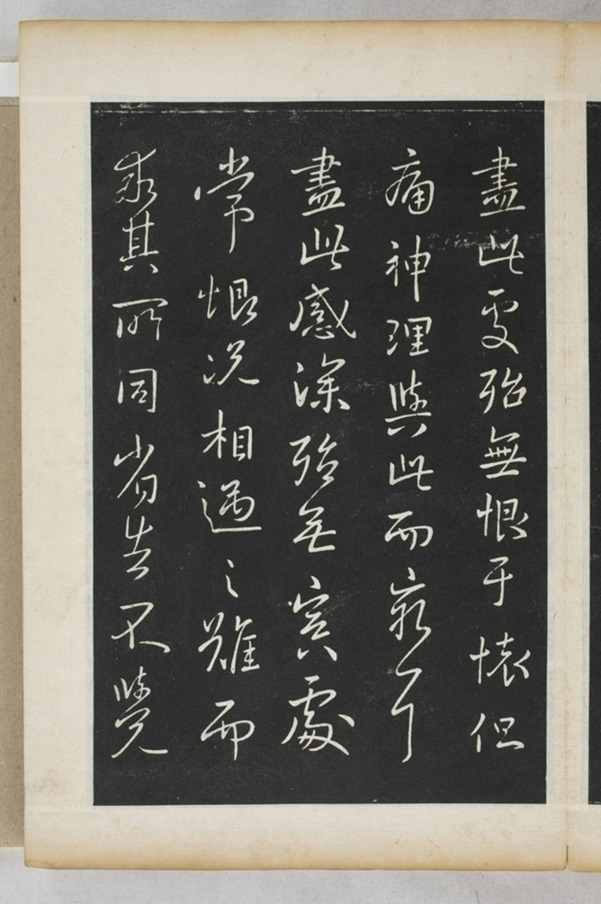 盡此處殆無恨于懷但
痛神理與此而窮耳
盡此感深殆無冥處
常恨況相遇之難而
乖其所同省告不覺